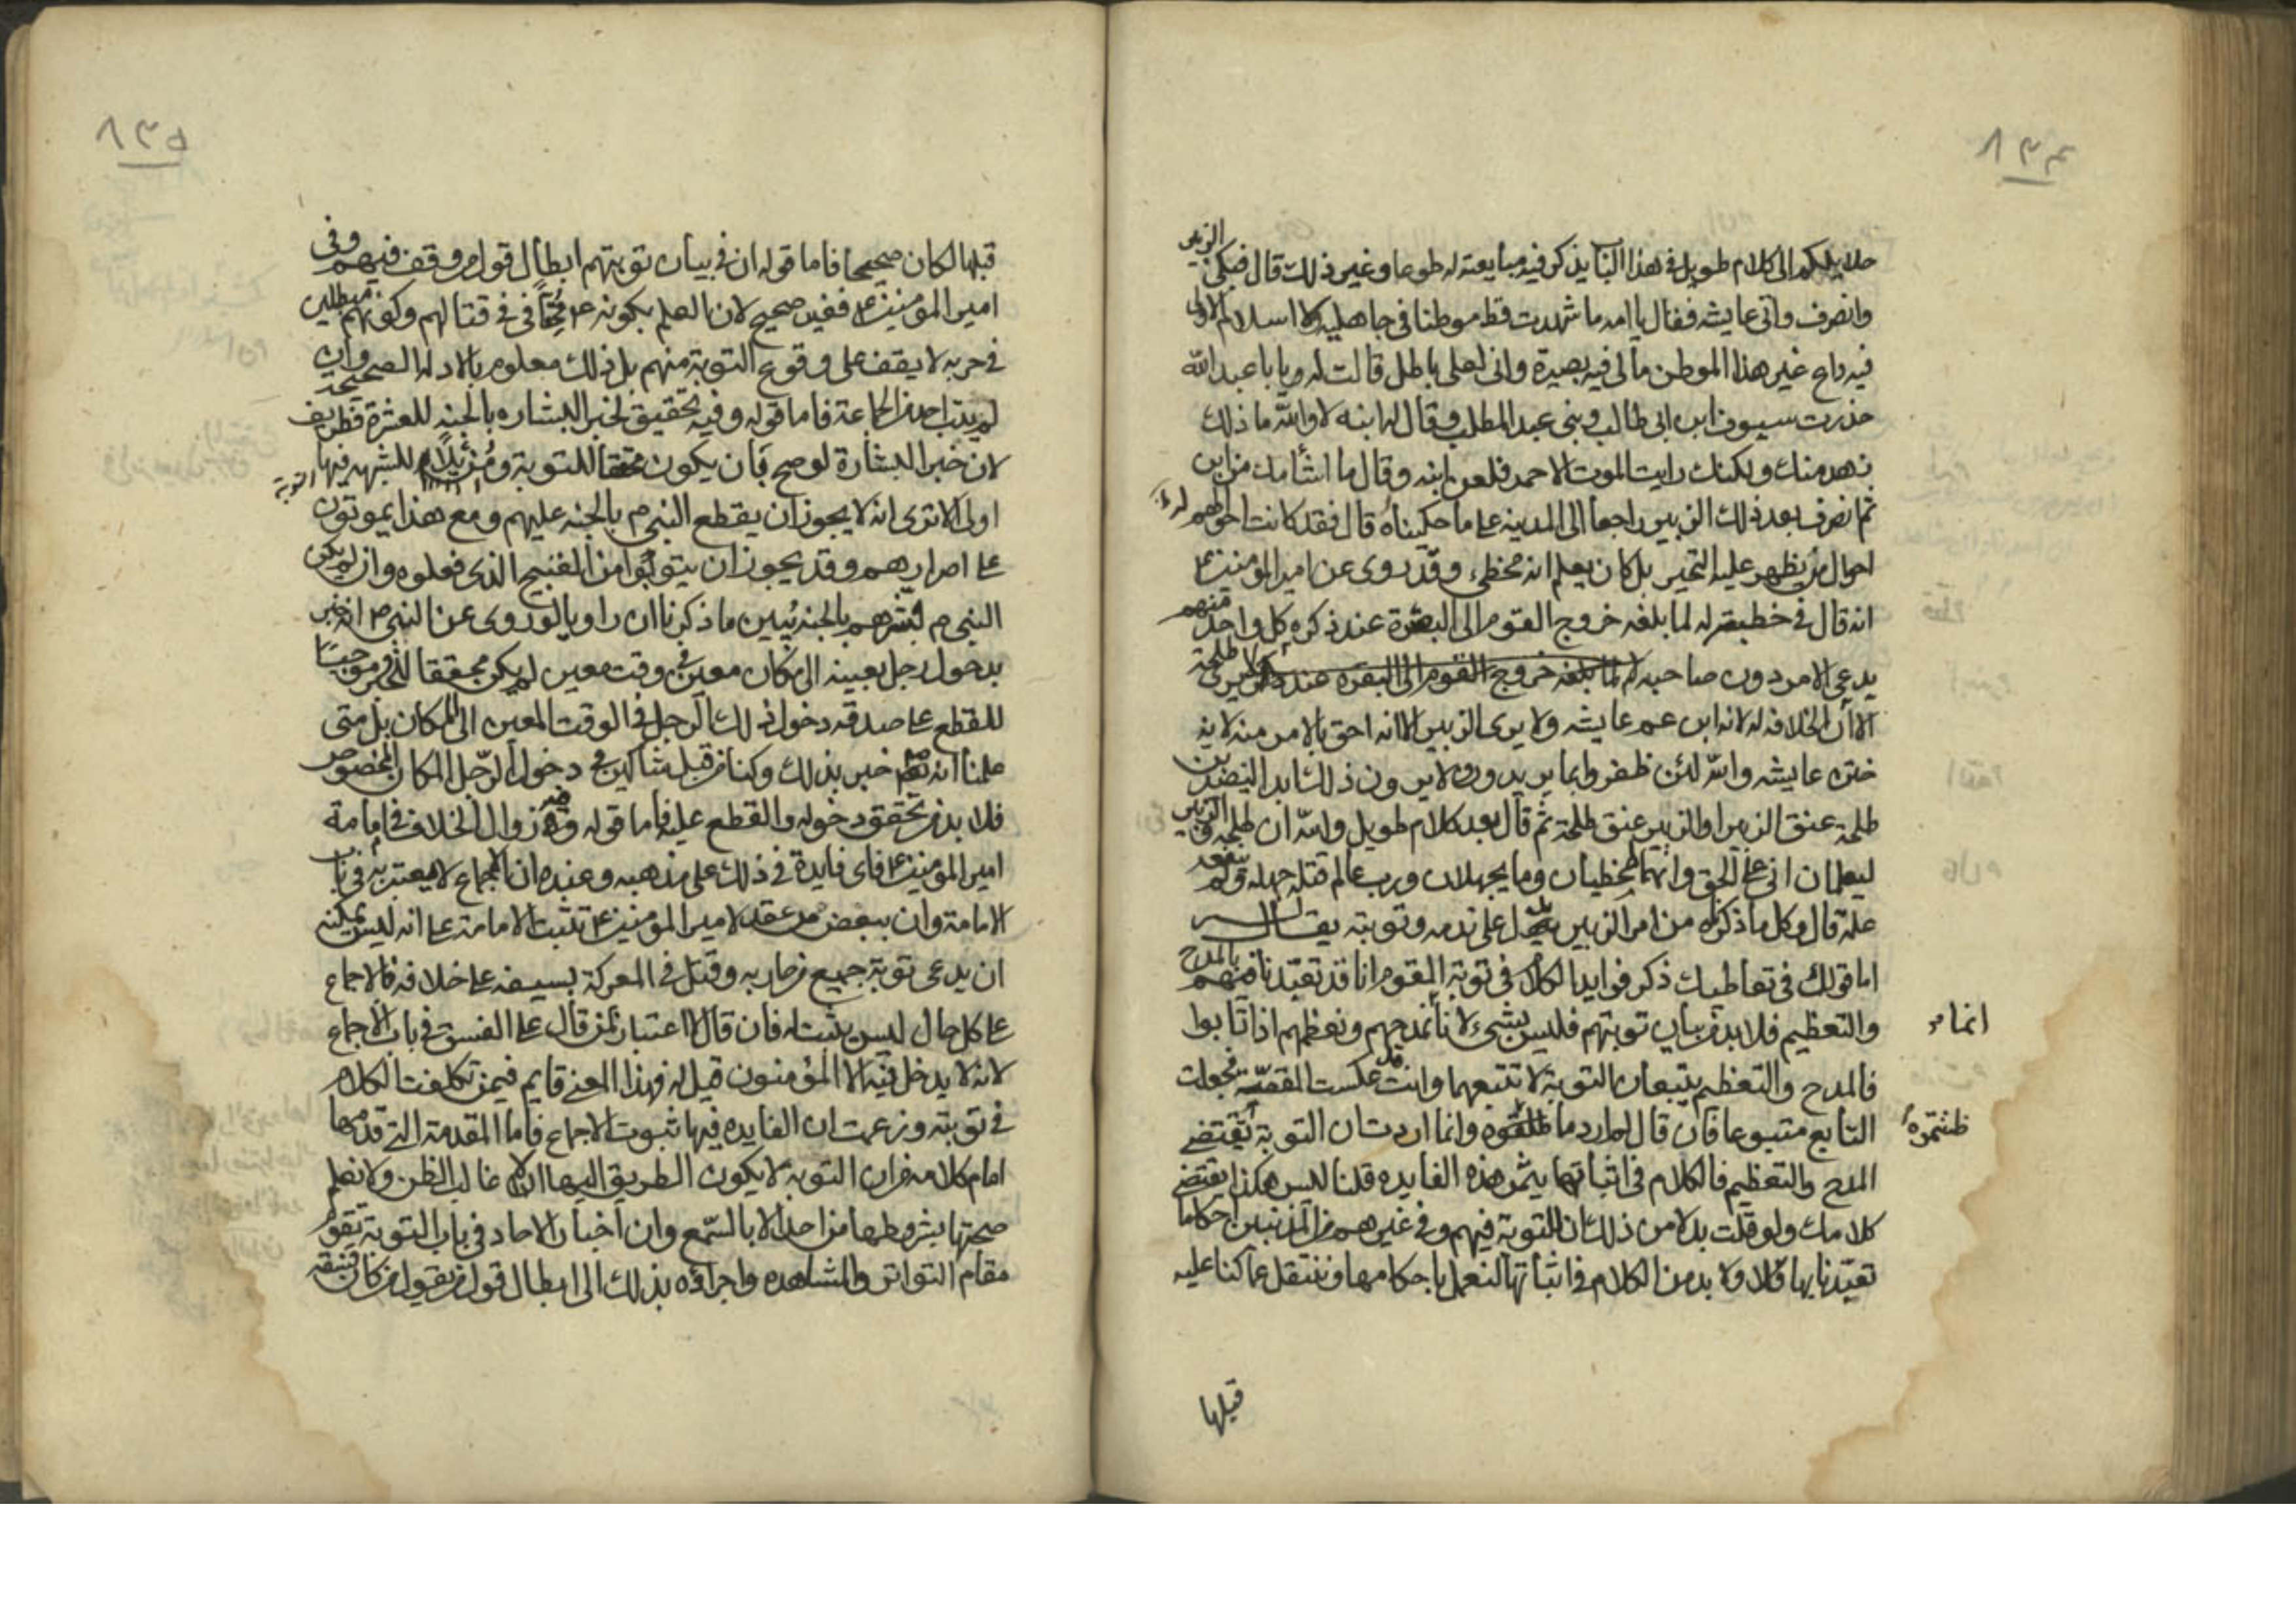 ٨٣٤
حلايلكم الى كلام طويل في هذا الباب يذكر فيه مبايعته له طوعا وغير ذلك قال فبكى الزبير
وانصرف واتى عايشه فقال يا امه ما شهدت قط موطنا في جاهلية ولا اسلام الا ولى
فيه داع غير هذا الموطن مالى فيه بصيرة وانى لعلى باطل قالت له يا با عبد الله
حذرت سيوف ابن ابى طالب وبنى عبد المطلب وقال له ابنه لا والله ما ذلك
زهد منك ولكنك رايت الموت الاحمر فلعن ابنه وقال ما اشأمك من ابن
ثم انصرف بعد ذلك الزبير راجعا الى المدينه على ما حكيناه قال فقد كانت احوالهم
احوال من يظهر عليه التحير بل كان يعلم انه مخطىء وقد روى عن امير المومنين ع
انه قال في خطبته له لما بلغه خروج القوم الى البصرة عند ذكره كل واحد منهم
يدعى الامر دون صاحبه لا يرى طلحة
الا ان الخلافه له لانه ابن عم عايشه ولا يرى الزبير الا انه احق بالامر منه لانه
ختن عايشه والله لئن ظفروا بما يريدون ولا يرون ذلك ابدا ليضربن
طلحة عنق الزبير او الزبير عنق طلحة ثم قال بعد كلام طويل والله ان طلحه والزبير
ليعلمان انى على الحق وانهما مخطيان وما يجهلان ورب عالم قتله جهله ولم ينفعه
علمه قال وكل ما ذكرناه من امر الزبير يدل على ندمه وتوبته يقال له
اما قولك في تعاطيك ذكر فوايد الكلام في توبة القوم انا قد تعبدنا فيهم بالمدح
والتعظيم فلا بد من بيان توبتهم فليس بشىء لانا نمدحهم ونعظمهم اذا تابوا
انما
فالمدح والتعظيم يتبعان التوبة لا تتبعهما وانت قد عكست القضيه فجعلت
التابع متبوعا فان قال لم ارد ما ظننتموه وانما اردت ان التوبة تقتضى
ظننتموه
المدح والتعظيم فالكلام في اثباتها يثمر هذه الفايده قلنا ليس هكذا يقتضى
كلامك ولو قلت بدلا من ذلك ان للتوبة فيهم وفي غيرهم من المذنبين احكاما
تعبدنا بها فلا بد من الكلام في اثباتها لنعمل باحكامها وننتقل عما كنا عليه
قبلها
٨٣٥
قبلها لكان صحيحا فاما قوله ان في بيان توبتهم ابطال قول من وقف فيهم وفى
امير المومنين ع فغير صحيح لان العلم بكونه ع محقا في قتالهم وكونهم مبطلين
في حربه لا يقف على وقوع التوبة منهم بل ذلك معلوم بالادله الصحيحة وان
لم يتب احد من الجماعة فاما قوله وفيه تحقيق لخبر البشاره بالجنه للعشرة فطريف
لان خبر البشارة لو صح بان يكون محققا للتوبة ومزيلا للشبهه فيها
التوبة
اولى الا ترى انه لا يجوز ان يقطع النبى م بالجنه عليهم ومع هذا يموتون
على اصرارهم وقد يجوز ان يتوبوا من القبيح الذى فعلوه وان لم يكن
النبى م بشرهم بالجنه يبين ما ذكرنا ان راويا لو روى عن النبى م انه خبر
بدخول رجل بعينه الى مكان معين في وقت معين لم يكن محققا للخبر وموجبا
للقطع على صدقه دخول ذلك الرجل في الوقت المعين الى المكان بل متى
علمنا انه م خبر بذلك وكنا من قبل شاكين في دخول الرجل المكان المخصوص
فلا بد من تحقق دخوله والقطع عليه فاما قوله وفيه زوال الخلاف في امامة
امير المومنين ع فاى فايدة في ذلك على مذهبه وعنده ان الاجماع لا يعتبر به في باب
الامامة وان ببعض من عقد لامير المومنين ع تثبت الامامة على انه ليس يمكنه
ان يدعى توبة جميع من حاربه وقتل في المعركة بسيفه على خلافه فالاجماع
على كل حال ليس يثبت له فان قال لا اعتبار بمن قال على الفسق في باب الاجماع
لانه لا يدخل فيه الا المؤمنون قيل له فهذا المعنى قايم فيمن تكلفت الكلام
في توبته وزعمت ان الفايده فيها ثبوت الاجماع فاما المقدمة التى قدمها
امام كلامه من ان التوبة لا يكون الطريق اليها الا غالب الظن ولا نعلم
صحتها بشروطها من احد الا بالسمع وان اخبار الاحاد في باب التوبة تقوم
مقام التواتر والمشاهده واجراؤه بذلك الى ابطال قول من يقول من كان فسقه